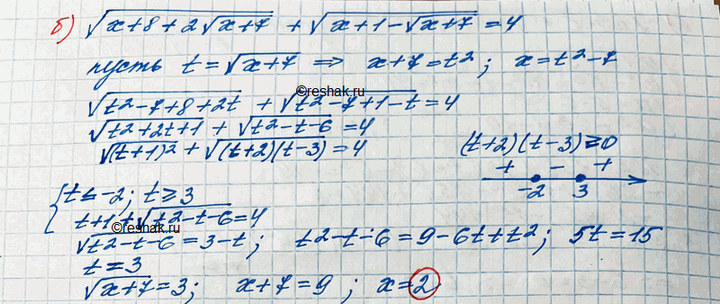 б) √(x+8+2√(x+7)) + √(x+1-√(x+7)) = 4
пусть t = √(x+7) ⇒ x+7 = t²; x = t²-7
©reshak.ru
√(t²-7+8+2t) + √(t²-7+1-t) = 4
√(t²+2t+1) + √(t²-t-6) = 4
√((t+1)²) + √((t+2)(t-3)) = 4
(t+2)(t-3) ≥ 0
+ - +
-2 3
{ t ≤ -2; t ≥ 3
t+1+√(t²-t-6) = 4
√(t²-t-6) = 3-t; t²-t-6 = 9-6t+t²; 5t = 15
t = 3
√(x+7) = 3; x+7 = 9; x = 2
©reshak.ru